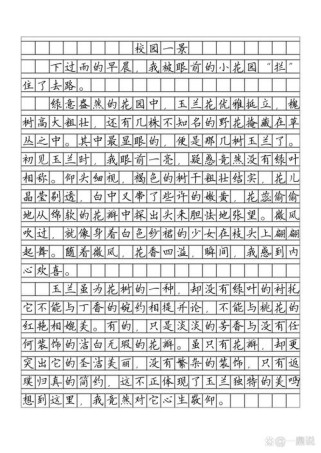 校园一景
下过雨的早晨，我被眼前的小花园“拦”
住了去路。
绿意盎然的花园中，玉兰花优雅挺立，槐
树高大粗壮，还有几株不知名的野花掩藏在草
丛之中。其中最显眼的，便是那几树玉兰了。
初见玉兰时，我眼前一亮，疑惑竟然没有绿叶
相称。仰头细视，褐色的树干粗壮结实，花儿
晶莹剔透，白中又带了些许的嫩黄，花蕊偷偷
地从绵软的花瓣中探出头来胆怯地张望。微风
吹过，就像穿着白色纱裙的少女在枝头上翩翩
起舞。随着微风，花香四溢，瞬间，我感到内
心欢喜。
玉兰虽为花树的一种，却没有绿叶的衬托
它不能与丁香的婉约相提并论，不能与桃花的
红艳相媲美。有的，只是淡淡的芳香与没有任
何装饰的洁白无瑕的花瓣。虽只有花瓣，却更
突出它的圣洁美丽，没有繁杂的装饰，只有返
璞归真的简约，这不正体现了玉兰独特的美吗
想到这里，我竟然对它心生敬仰。